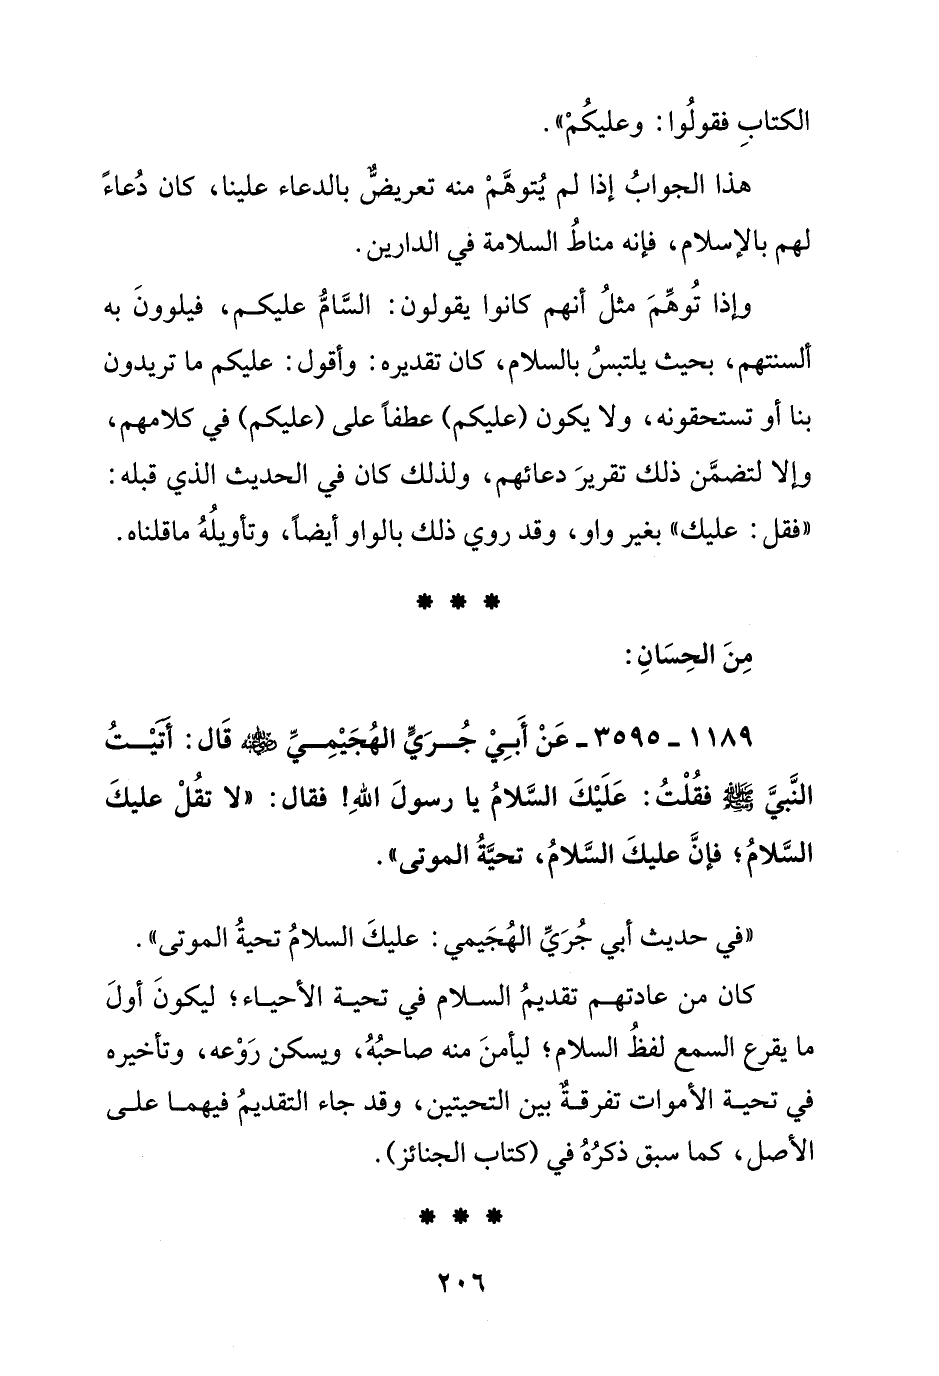 الكتابِ فقولُوا: وعليكُمْ».
هذا الجوابُ إذا لم يُتوهَّمْ منه تعريضٌ بالدعاء علينا، كان دُعاءً
لهم بالإسلام، فإنه مناطُ السلامة في الدارين.
وإذا تُوهِّمَ مثلُ أنهم كانوا يقولون: السَّامُّ عليكم، فيلوونَ به
ألسنتهم، بحيث يلتبسُ بالسلام، كان تقديره: وأقول: عليكم ما تريدون
بنا أو تستحقونه، ولا يكون (عليكم) عطفاً على (عليكم) في كلامهم،
وإلا لتضمَّن ذلك تقريرَ دعائهم، ولذلك كان في الحديث الذي قبله:
«فقل: عليك» بغير واو، وقد روي ذلك بالواو أيضاً، وتأويلُهُ ماقلناه.
* * *
مِنَ الحِسَانِ:
١١٨٩ - ٣٥٩٥ - عَنْ أَبِيْ جُرَيٍّ الهُجَيْمِيِّ رضي الله عنه قَال: أَتَيْتُ
النَّبيَّ ﷺ فقُلْتُ: عَلَيْكَ السَّلامُ يا رسولَ اللهِ! فقال: «لا تقُلْ عليكَ
السَّلامُ؛ فإنَّ عليكَ السَّلامُ، تحيَّةُ الموتى».
«في حديث أبي جُرَيِّ الهُجَيمي: عليكَ السلامُ تحيةُ الموتى».
كان من عادتهم تقديمُ السلام في تحية الأحياء؛ ليكونَ أولَ
ما يقرع السمع لفظُ السلام؛ ليأمنَ منه صاحبُهُ، ويسكن رَوْعه، وتأخيره
في تحية الأموات تفرقةٌ بين التحيتين، وقد جاء التقديمُ فيهما على
الأصل، كما سبق ذكرُهُ في (كتاب الجنائز).
* * *
٢٠٦